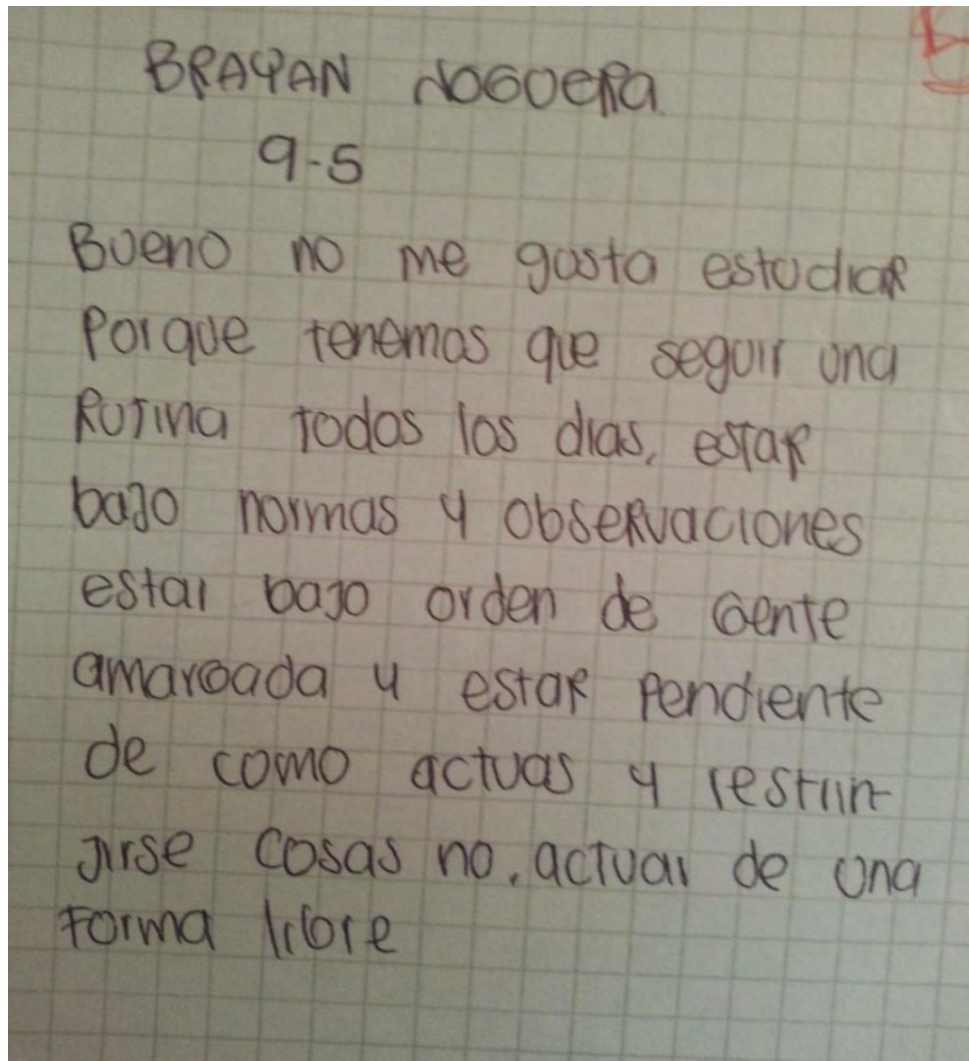 BRAYAN NOGUERA.
9-5
Bueno no me gusta estudiar
Porque tenemos que seguir una
Rutina todos los dias, estar
bajo normas y observaciones
estar bajo orden de gente
amargada y estar pendiente
de como actuas y restrin-
jirse cosas no, actuar de una
forma libre